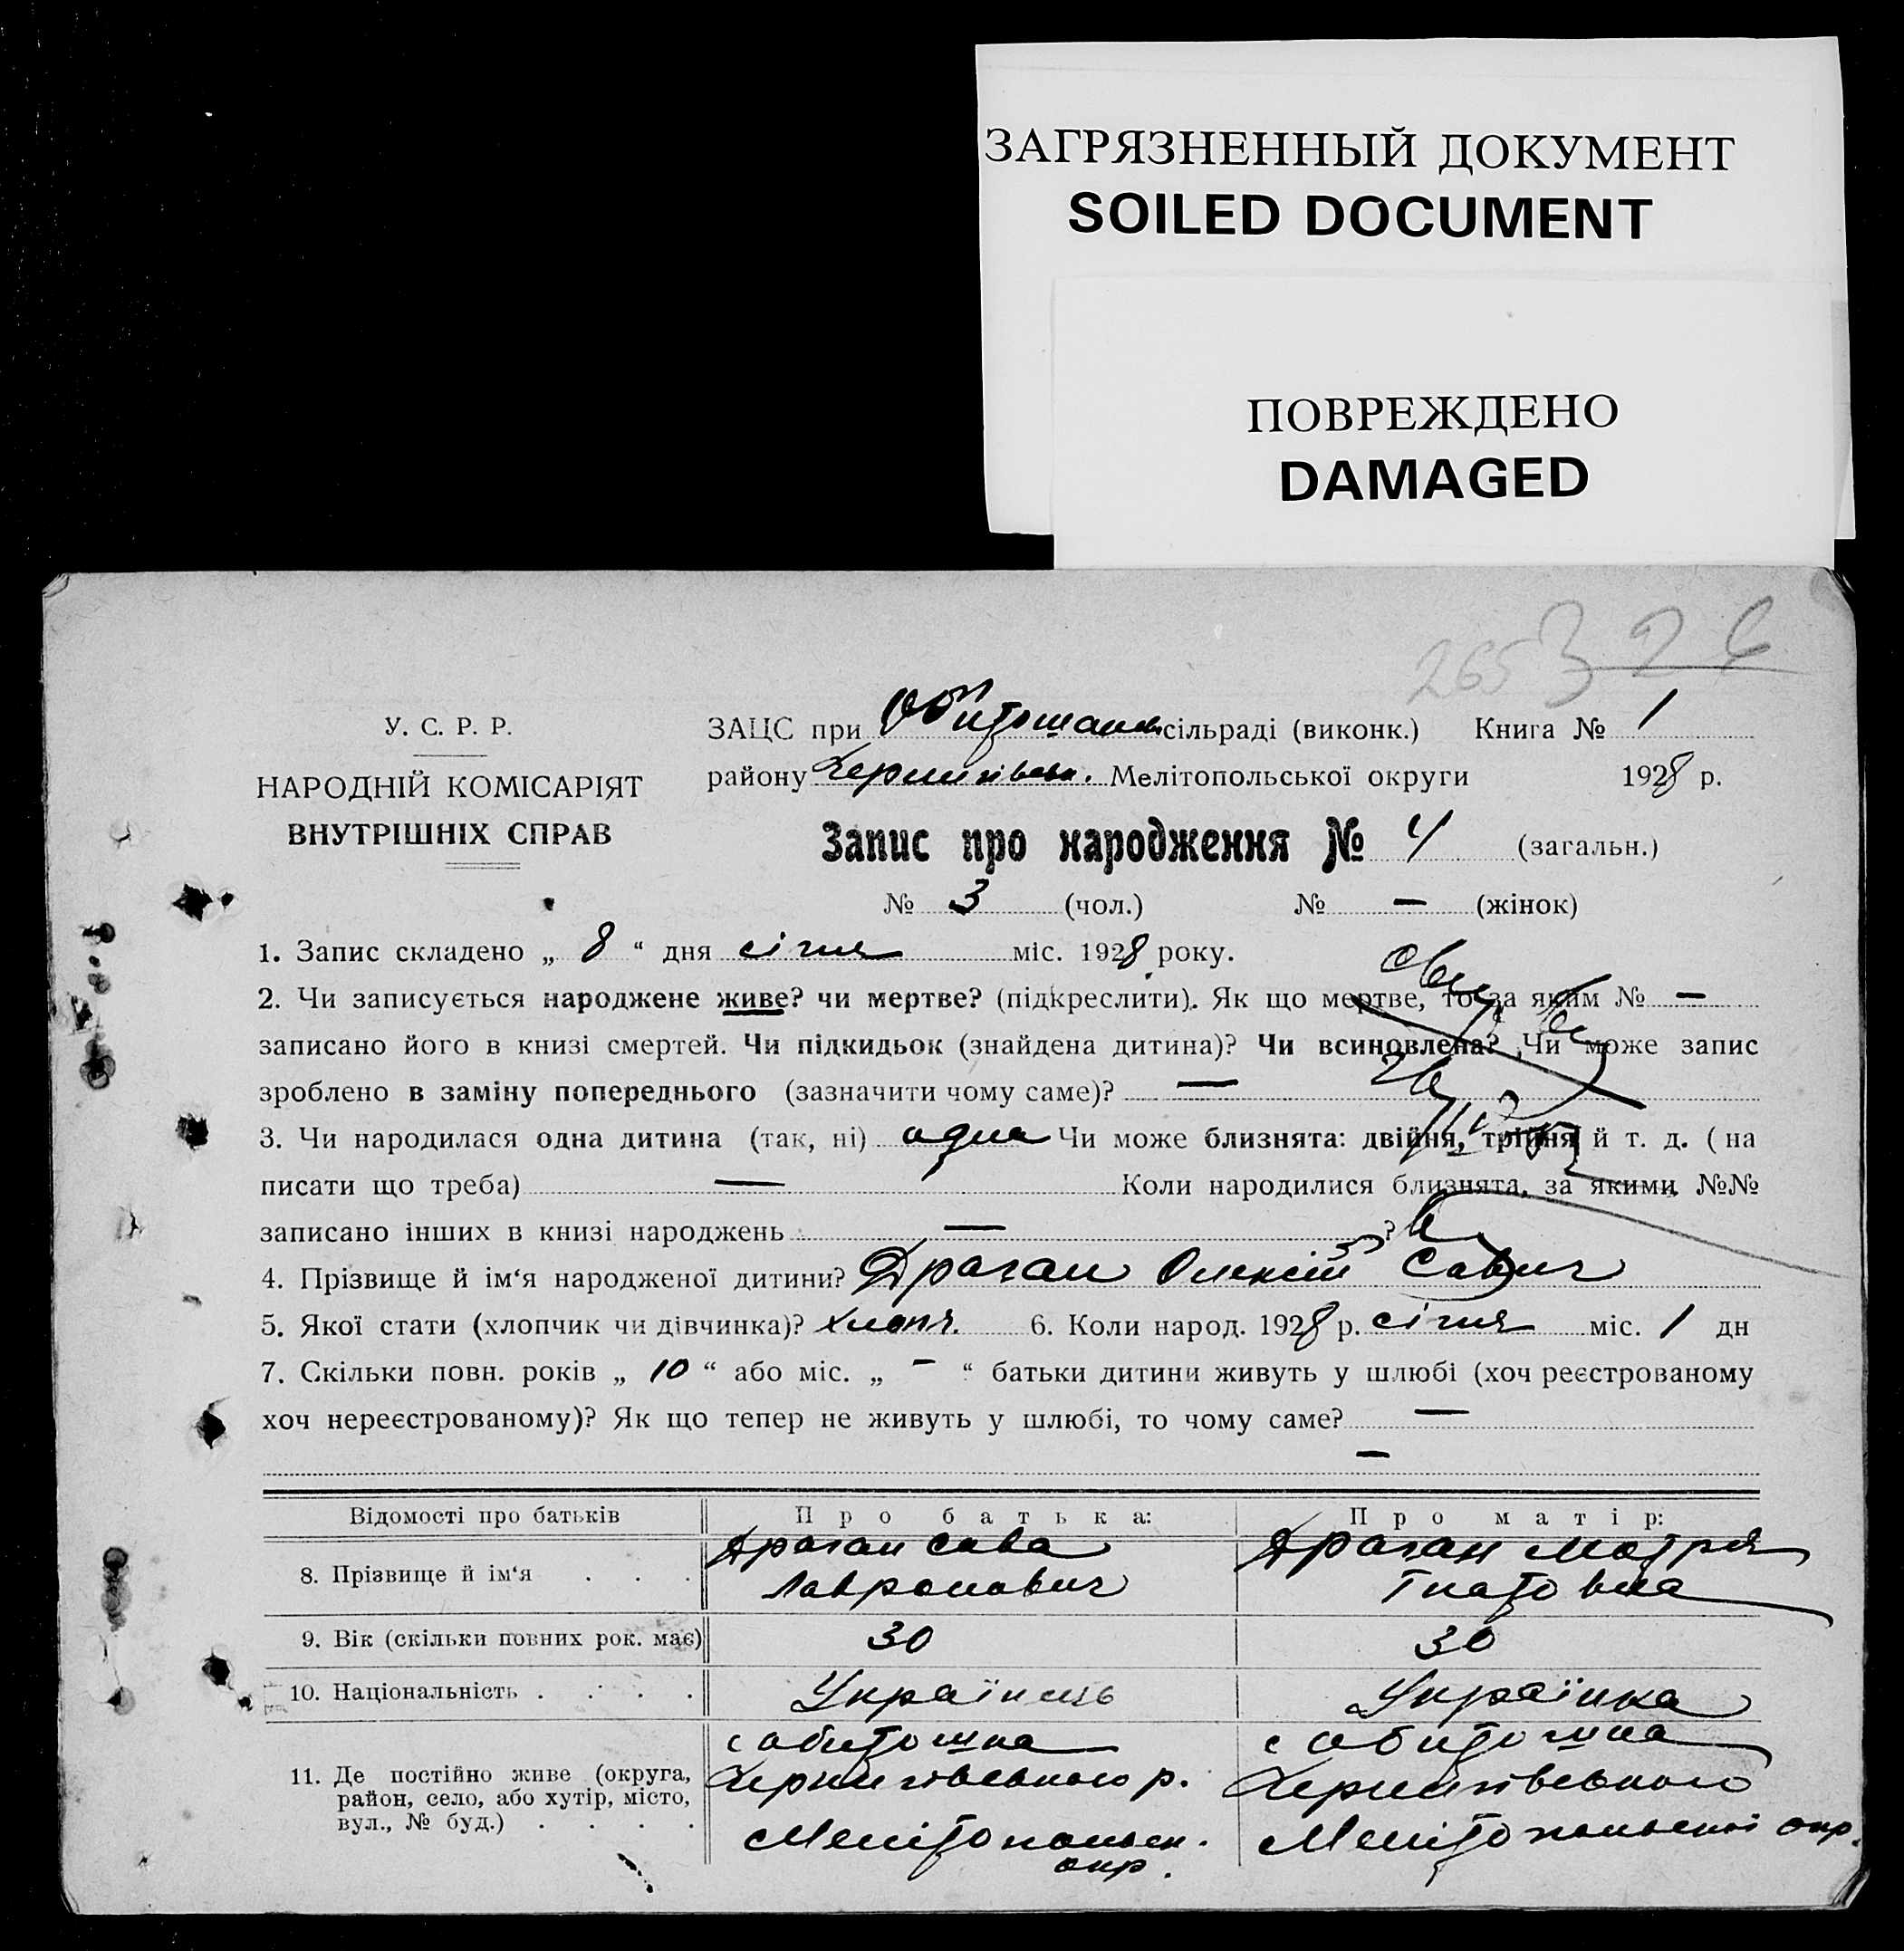 ЗАГРЯЗНЕННЫЙ ДОКУМЕНТ
SOILED DOCUMENT
ПОВРЕЖДЕНО
DAMAGED
265 326
У. С. Р. Р.
НАРОДНІЙ КОМІСАРІЯТ
ВНУТРІШНІХ СПРАВ
ЗАЦС при сільраді (виконк.) Книга № 1
району Мелітопольської округи 1928 р.
Запис про народження № 4 (загальн.)
№ 3 (чол.) № — (жінок)
1. Запис складено „ 8 “ дня січня міс. 1928 року.
2. Чи записується народжене живе? чи мертве? (підкреслити). Як що мертве, то за яким № —
записано його в книзі смертей. Чи підкидьок (знайдена дитина)? Чи всиновлена? Чи може запис
зроблено в заміну попереднього (зазначити чому саме)? —
3. Чи народилася одна дитина (так, ні) одна Чи може близнята: двійня, трійня й т. д. ( на
писати що треба) — Коли народилися близнята, за якими №№
записано інших в книзі народжень — ?
4. Прізвище й ім‘я народженої дитини? Драган Олексій Савич
5. Якої стати (хлопчик чи дівчинка)? хлопч. 6. Коли народ. 1928 р. січня міс. 1 дн
7. Скільки повн. років „ 10 “ або міс. „ - “ батьки дитини живуть у шлюбі (хоч реєстрованому
хоч нереєстрованому)? Як що тепер не живуть у шлюбі, то чому саме? —
—
Відомості про батьків Про батька: Про матір:
8. Прізвище й ім‘я . . . Драган Сава Лавронович Драган Мотря Гнатовна
9. Вік (скільки повних рок. має) 30 30
10. Національність . . . . Українець Українка
11. Де постійно живе (округа, район, село, або хутір, місто, вул., № буд.) . . . . с Обиточна Чернигівського р. Мелітопольск. окр. с Обиточна Чернигівського Мелітопольскої окр.